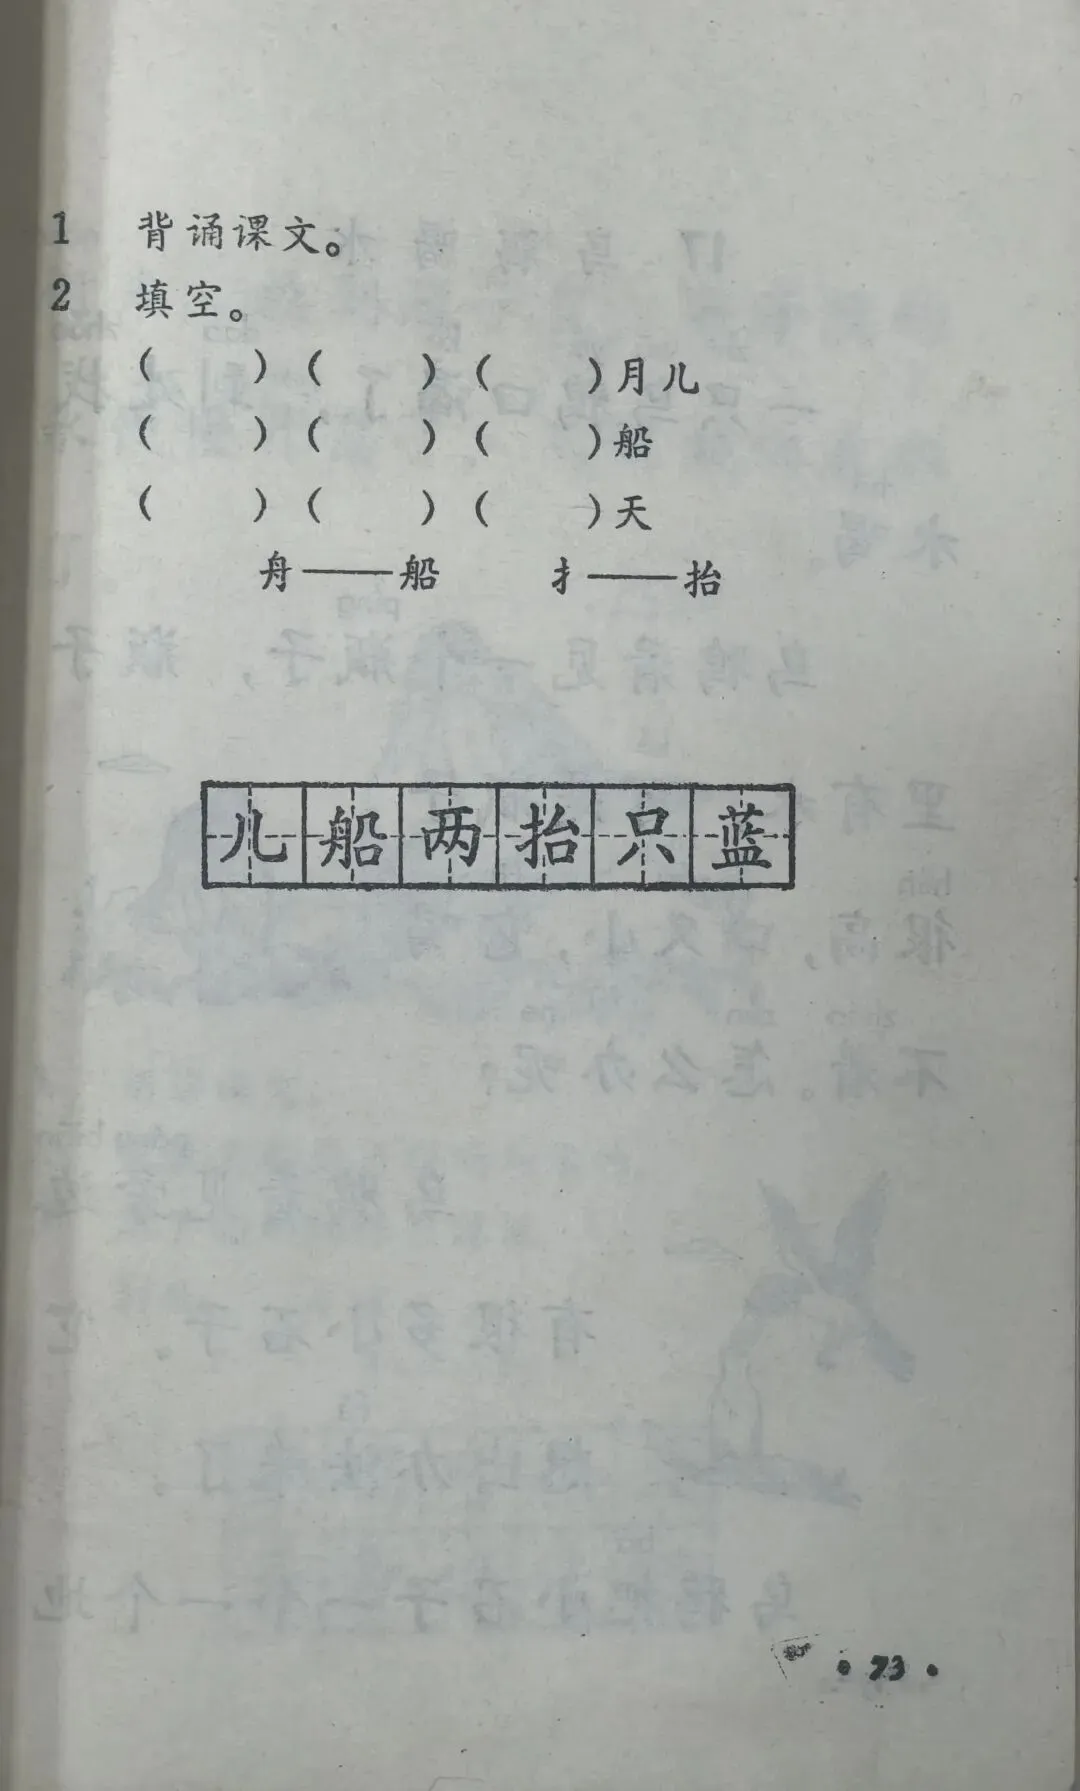 1 背诵课文。
2 填空。
( ) ( ) ( )月儿
( ) ( ) ( )船
( ) ( ) ( )天
舟——船 扌——抬
儿船两抬只蓝
·73·